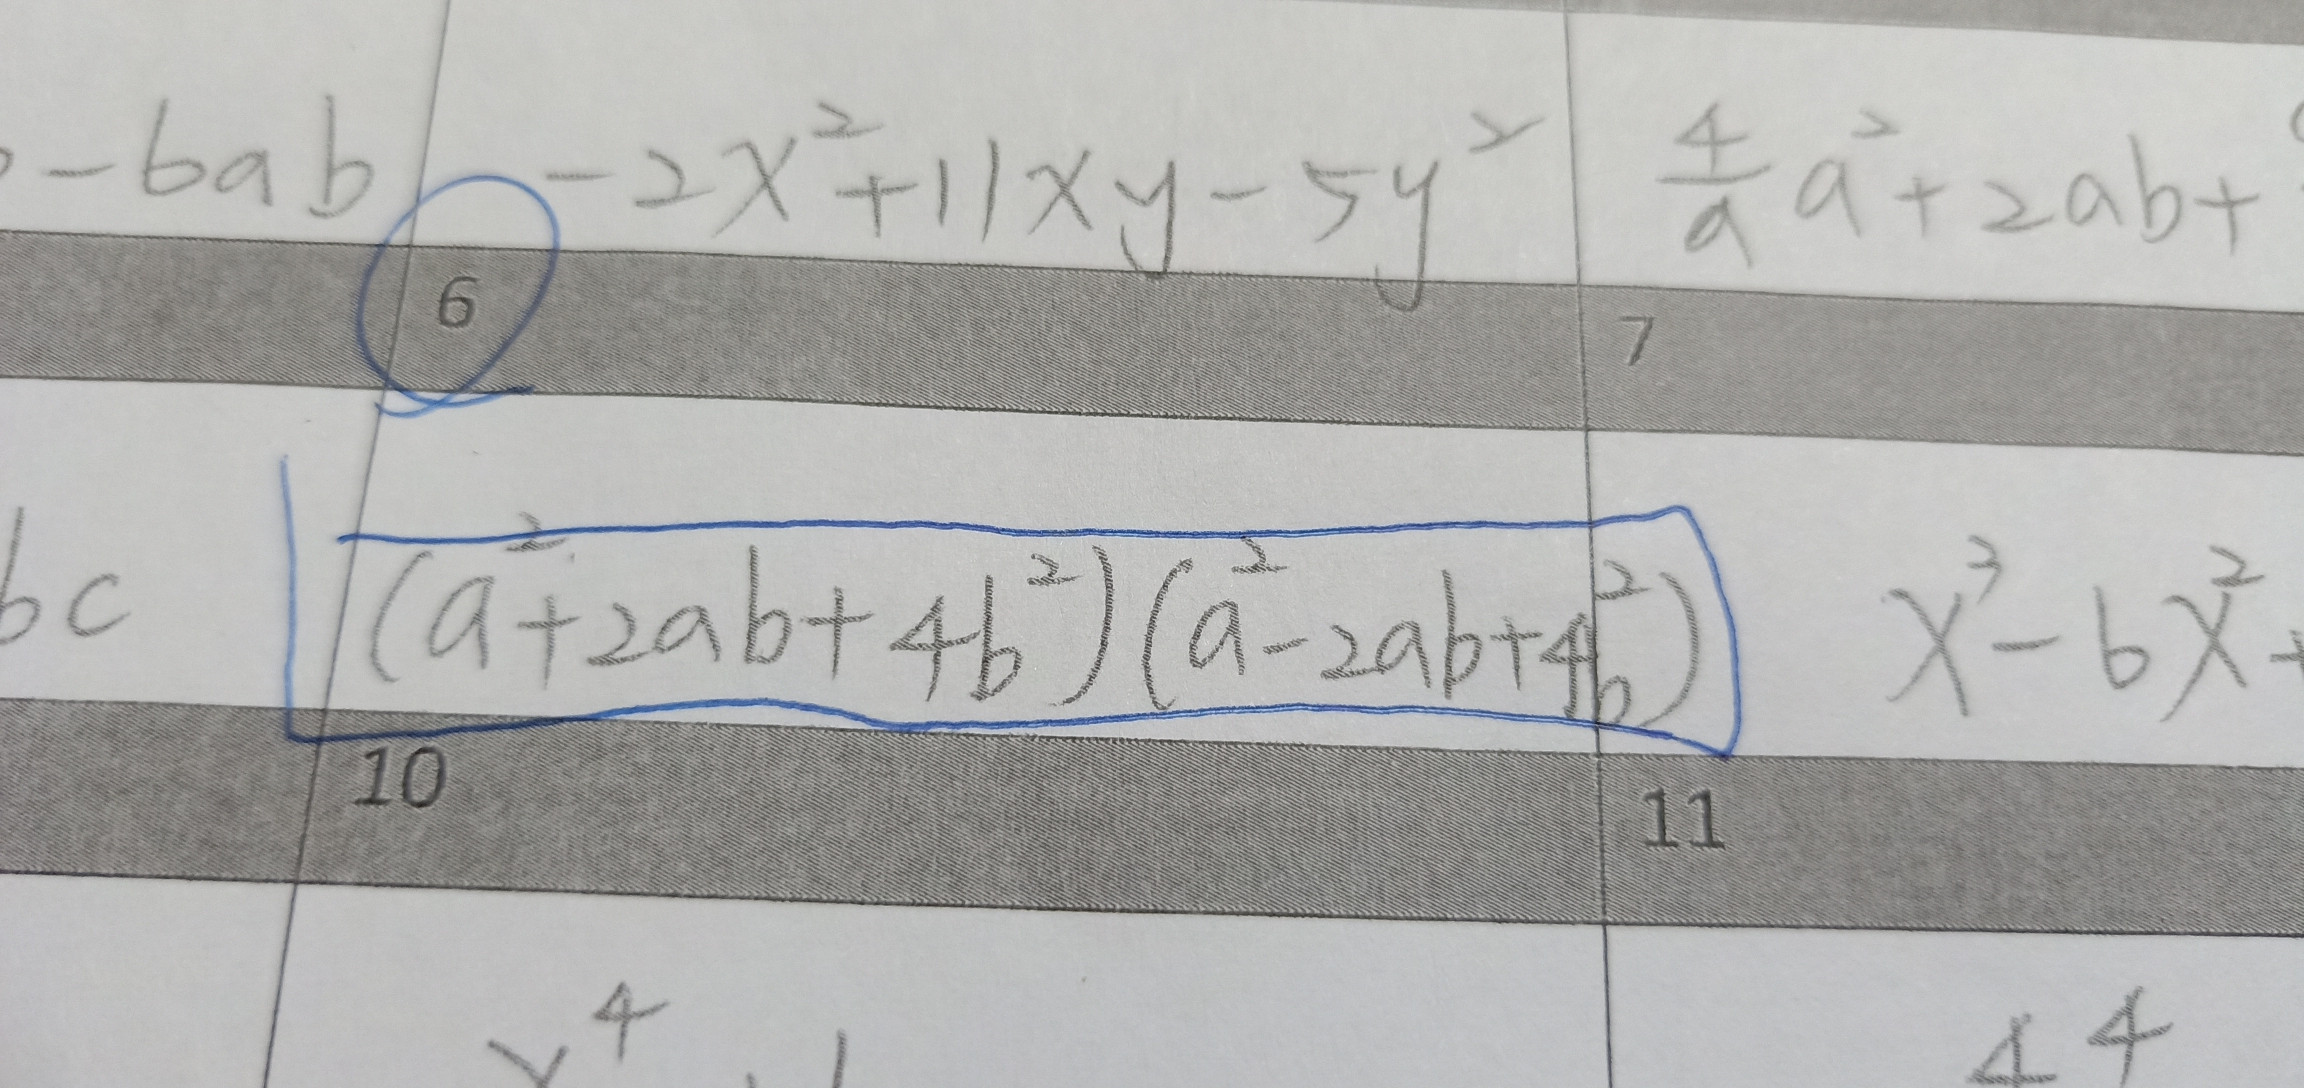 -6ab -2x²+11xy-5y² 4/9 a²+2ab+
6 7
bc (a²+2ab+4b²)(a²-2ab+4b²) x³-6x²+
10 11